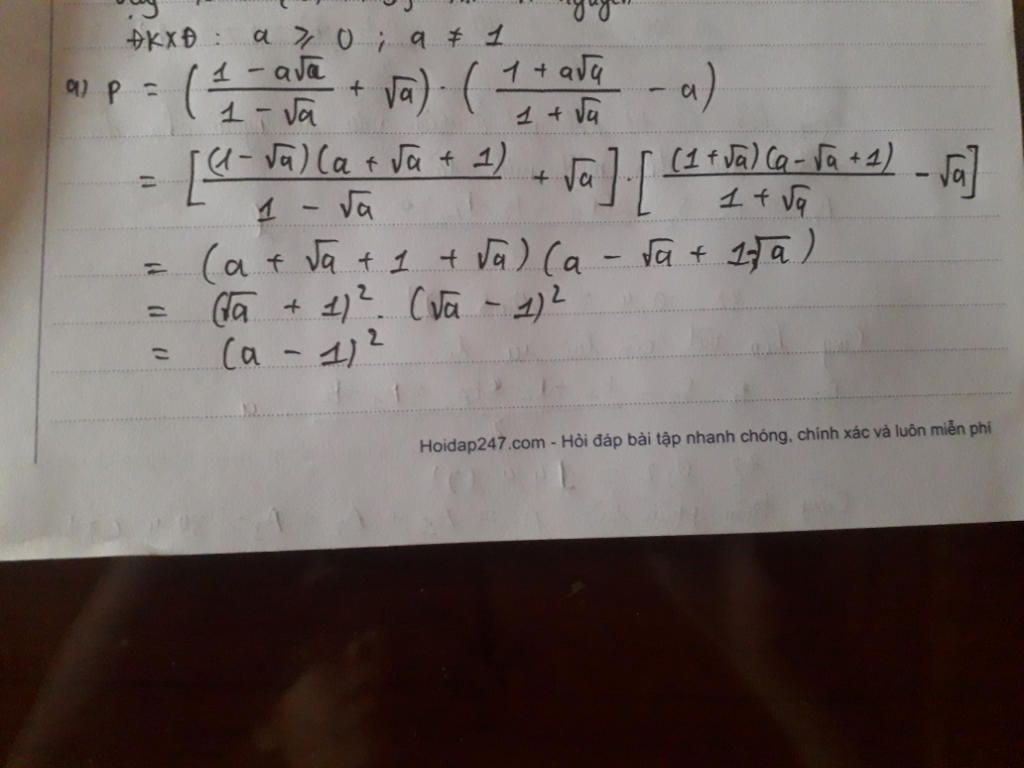 ĐKXĐ : a ≥ 0 ; a ≠ 1
a) P = ( (1 - a√a)/(1 - √a) + √a ) · ( (1 + a√a)/(1 + √a) - a )
= [ (1 - √a)(a + √a + 1)/(1 - √a) + √a ] · [ (1 + √a)(a - √a + 1)/(1 + √a) - √a ]
= (a + √a + 1 + √a) (a - √a + 1 - √a)
= (√a + 1)² . (√a - 1)²
= (a - 1)²
Hoidap247.com - Hỏi đáp bài tập nhanh chóng, chính xác và luôn miễn phí